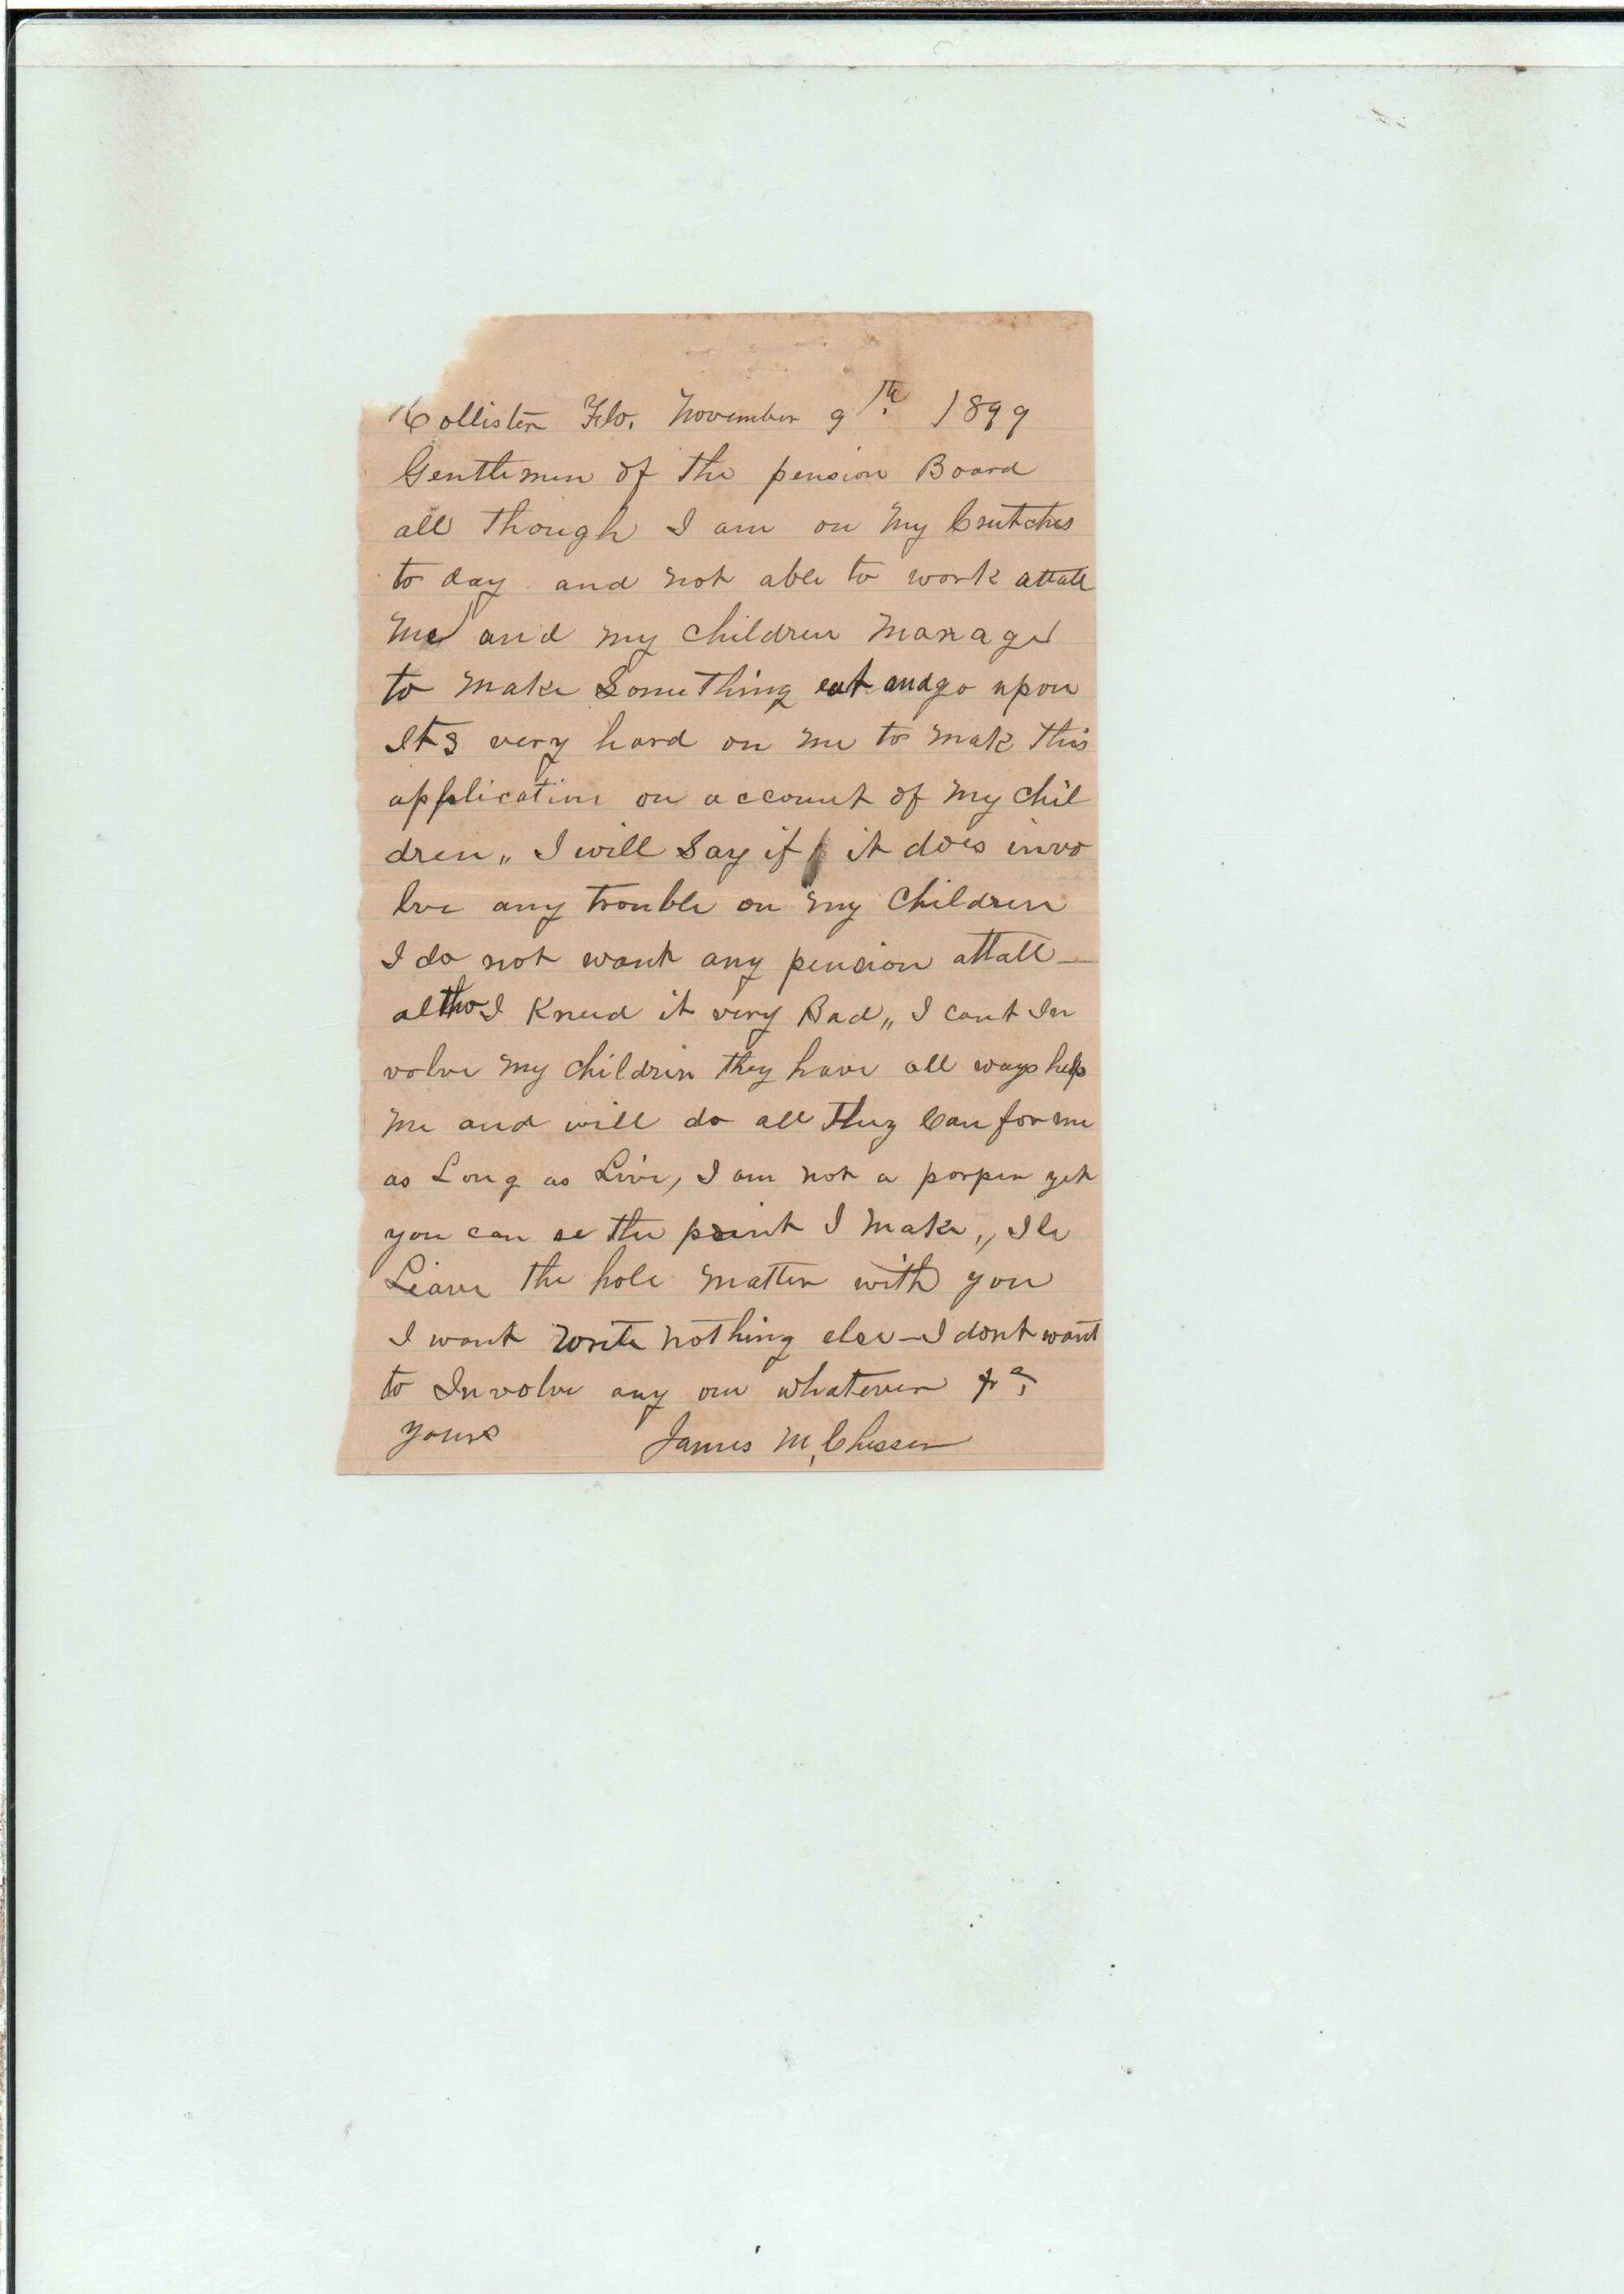 Hollister Fla. November 9th. 1899
Gentlemen of the pension Board
all though I am on my Crutches
to day and not able to work attall
me and my children manage
to make Something eat and go upon
Its very hard on me to mak this
application on account of my chil
dren,, I will Say if it does invo
lve any trouble on my Children
I do not want any pension attall
altho I Kneed it very Bad,, I cant In
volve my children they have all ways help
me and will do all they Can for me
as Long as Live, I am not a porper yet
you can se the point I make,, Ile
Leave the hole matter with you
I want write nothing else - I dont want
to Involve any one whatever &c,
yours James M, Chesser